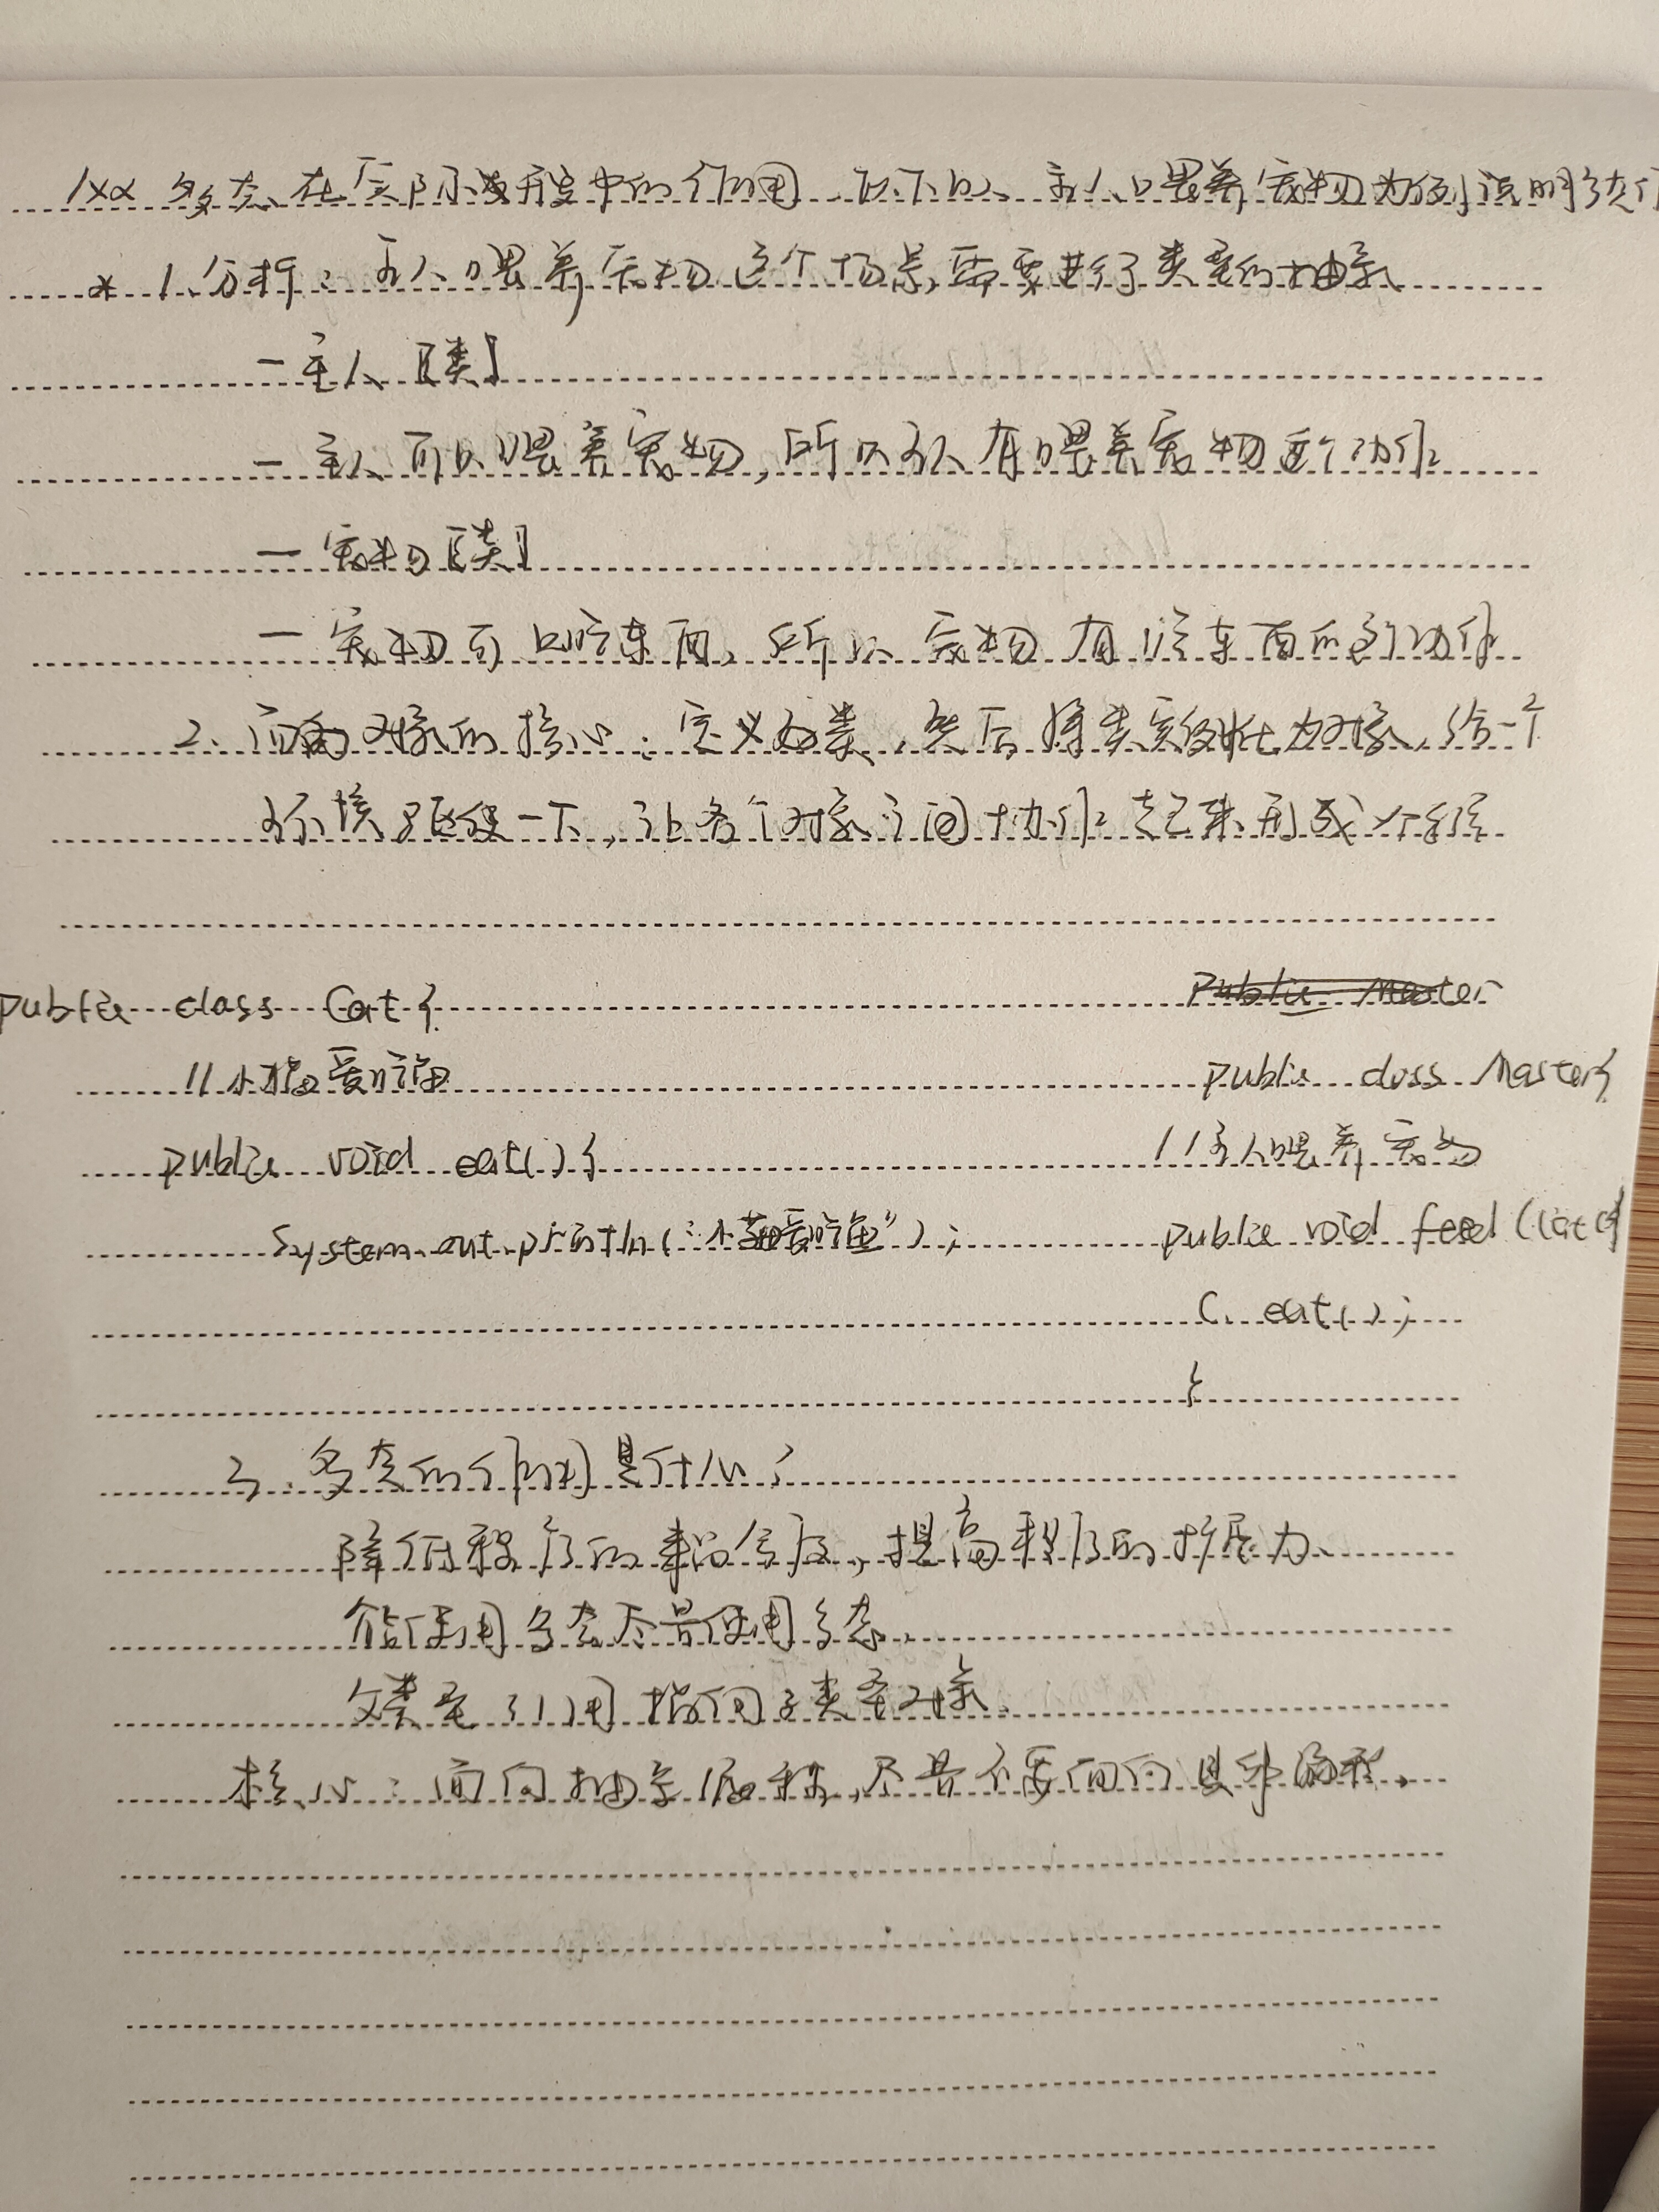 /** 多态在实际开发中的作用, 以下以主人喂养宠物为例说明多态作
* 1.分析: 主人喂养宠物这个场景, 需要进行类型的抽象
- 主人【类】
- 主人可以喂养宠物, 所以主人有喂养宠物这个动作
- 宠物【类】
- 宠物可以吃东西, 所以宠物有吃东西的这个动作
2. 面向对象的核心: 定义好类, 然后将类实例化为对象, 给一个
环境驱使一下, 让各个对象之间协作起来形成一个系统
public class Cat {
//小猫爱吃鱼
public void eat() {
System.out.println("小猫爱吃鱼");
Public Master
public class Master{
//主人喂养宠物
public void feed (Cat c){
c.eat();
}
3. 多态的作用是什么?
降低程序的耦合度, 提高程序的扩展力、
能使用多态尽量使用多态、
父类型引用指向子类型对象、
核心: 面向抽象编程, 尽量不要面向具体编程、